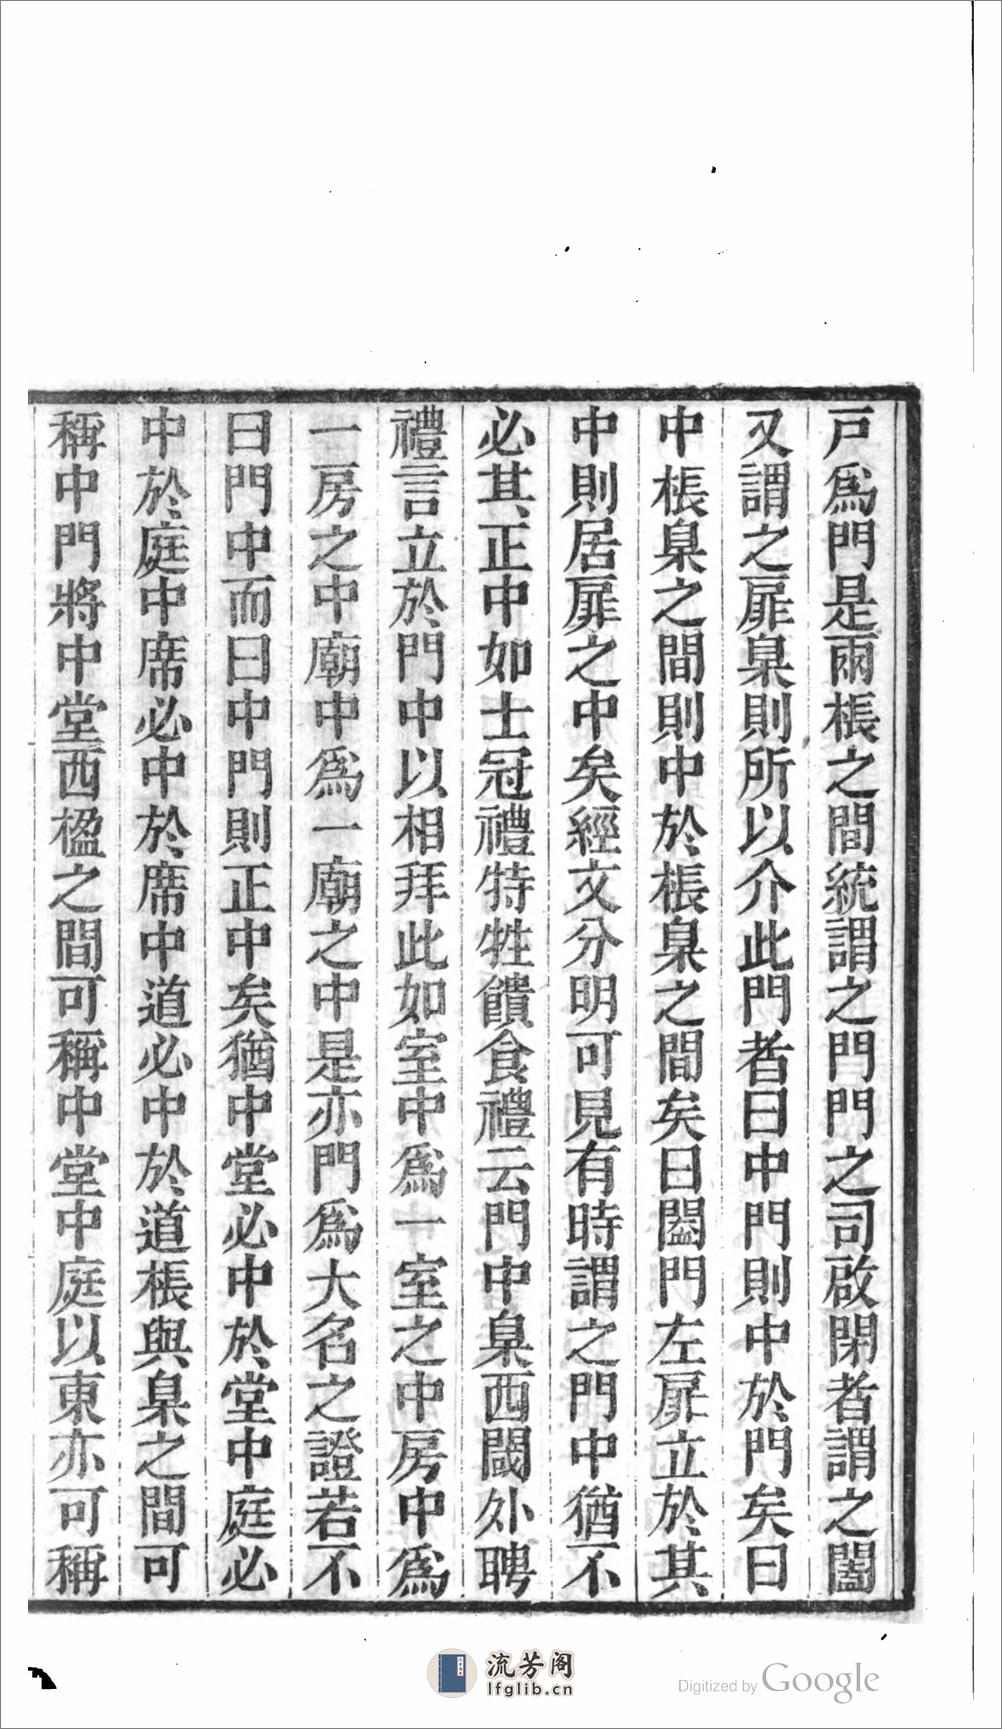 戸爲門是兩棖之間統謂之門門之司啟閉者謂之闔
又謂之扉臬則所以介此門者曰中門則中於門矣曰
中棖臬之間則中於棖臬之間矣曰闔門左扉立於其
中則居扉之中矣經文分明可見有時謂之門中猶不
必其正中如士冠禮特牲饋食禮云門中臬西閾外聘
禮言立於門中以相拜此如室中爲一室之中房中爲
一房之中廟中爲一廟之中是亦門爲大名之證若不
曰門中而曰中門則正中矣猶中堂必中於堂中庭必
中於庭中席必中於席中道必中於道棖與臬之間可
稱中門將中堂西楹之間可稱中堂中庭以東亦可稱
流芳阁
lfglib.cn
Digitized by Google